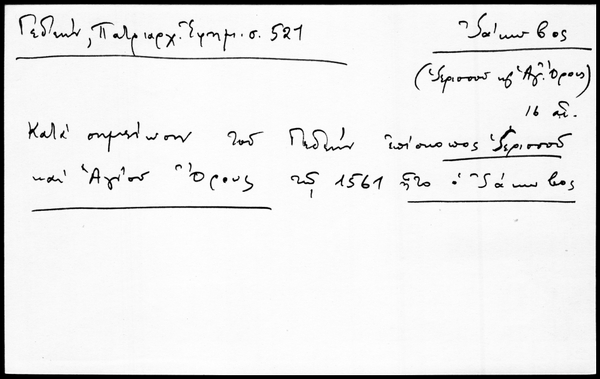 Γεδεών, Πατριαρχ. Ἐφημ. σ. 521
Ἰάκωβος
(Ἱερισσοῦ κ Ἁγ. Ὄρους)
16 αἰ.
Κατά σημείωσιν τοῦ Γεδεών ἐπίσκοπος Ἱερισσοῦ
καί Ἁγίου Ὄρους τῷ 1561 ἦτο ὁ Ἰάκωβος